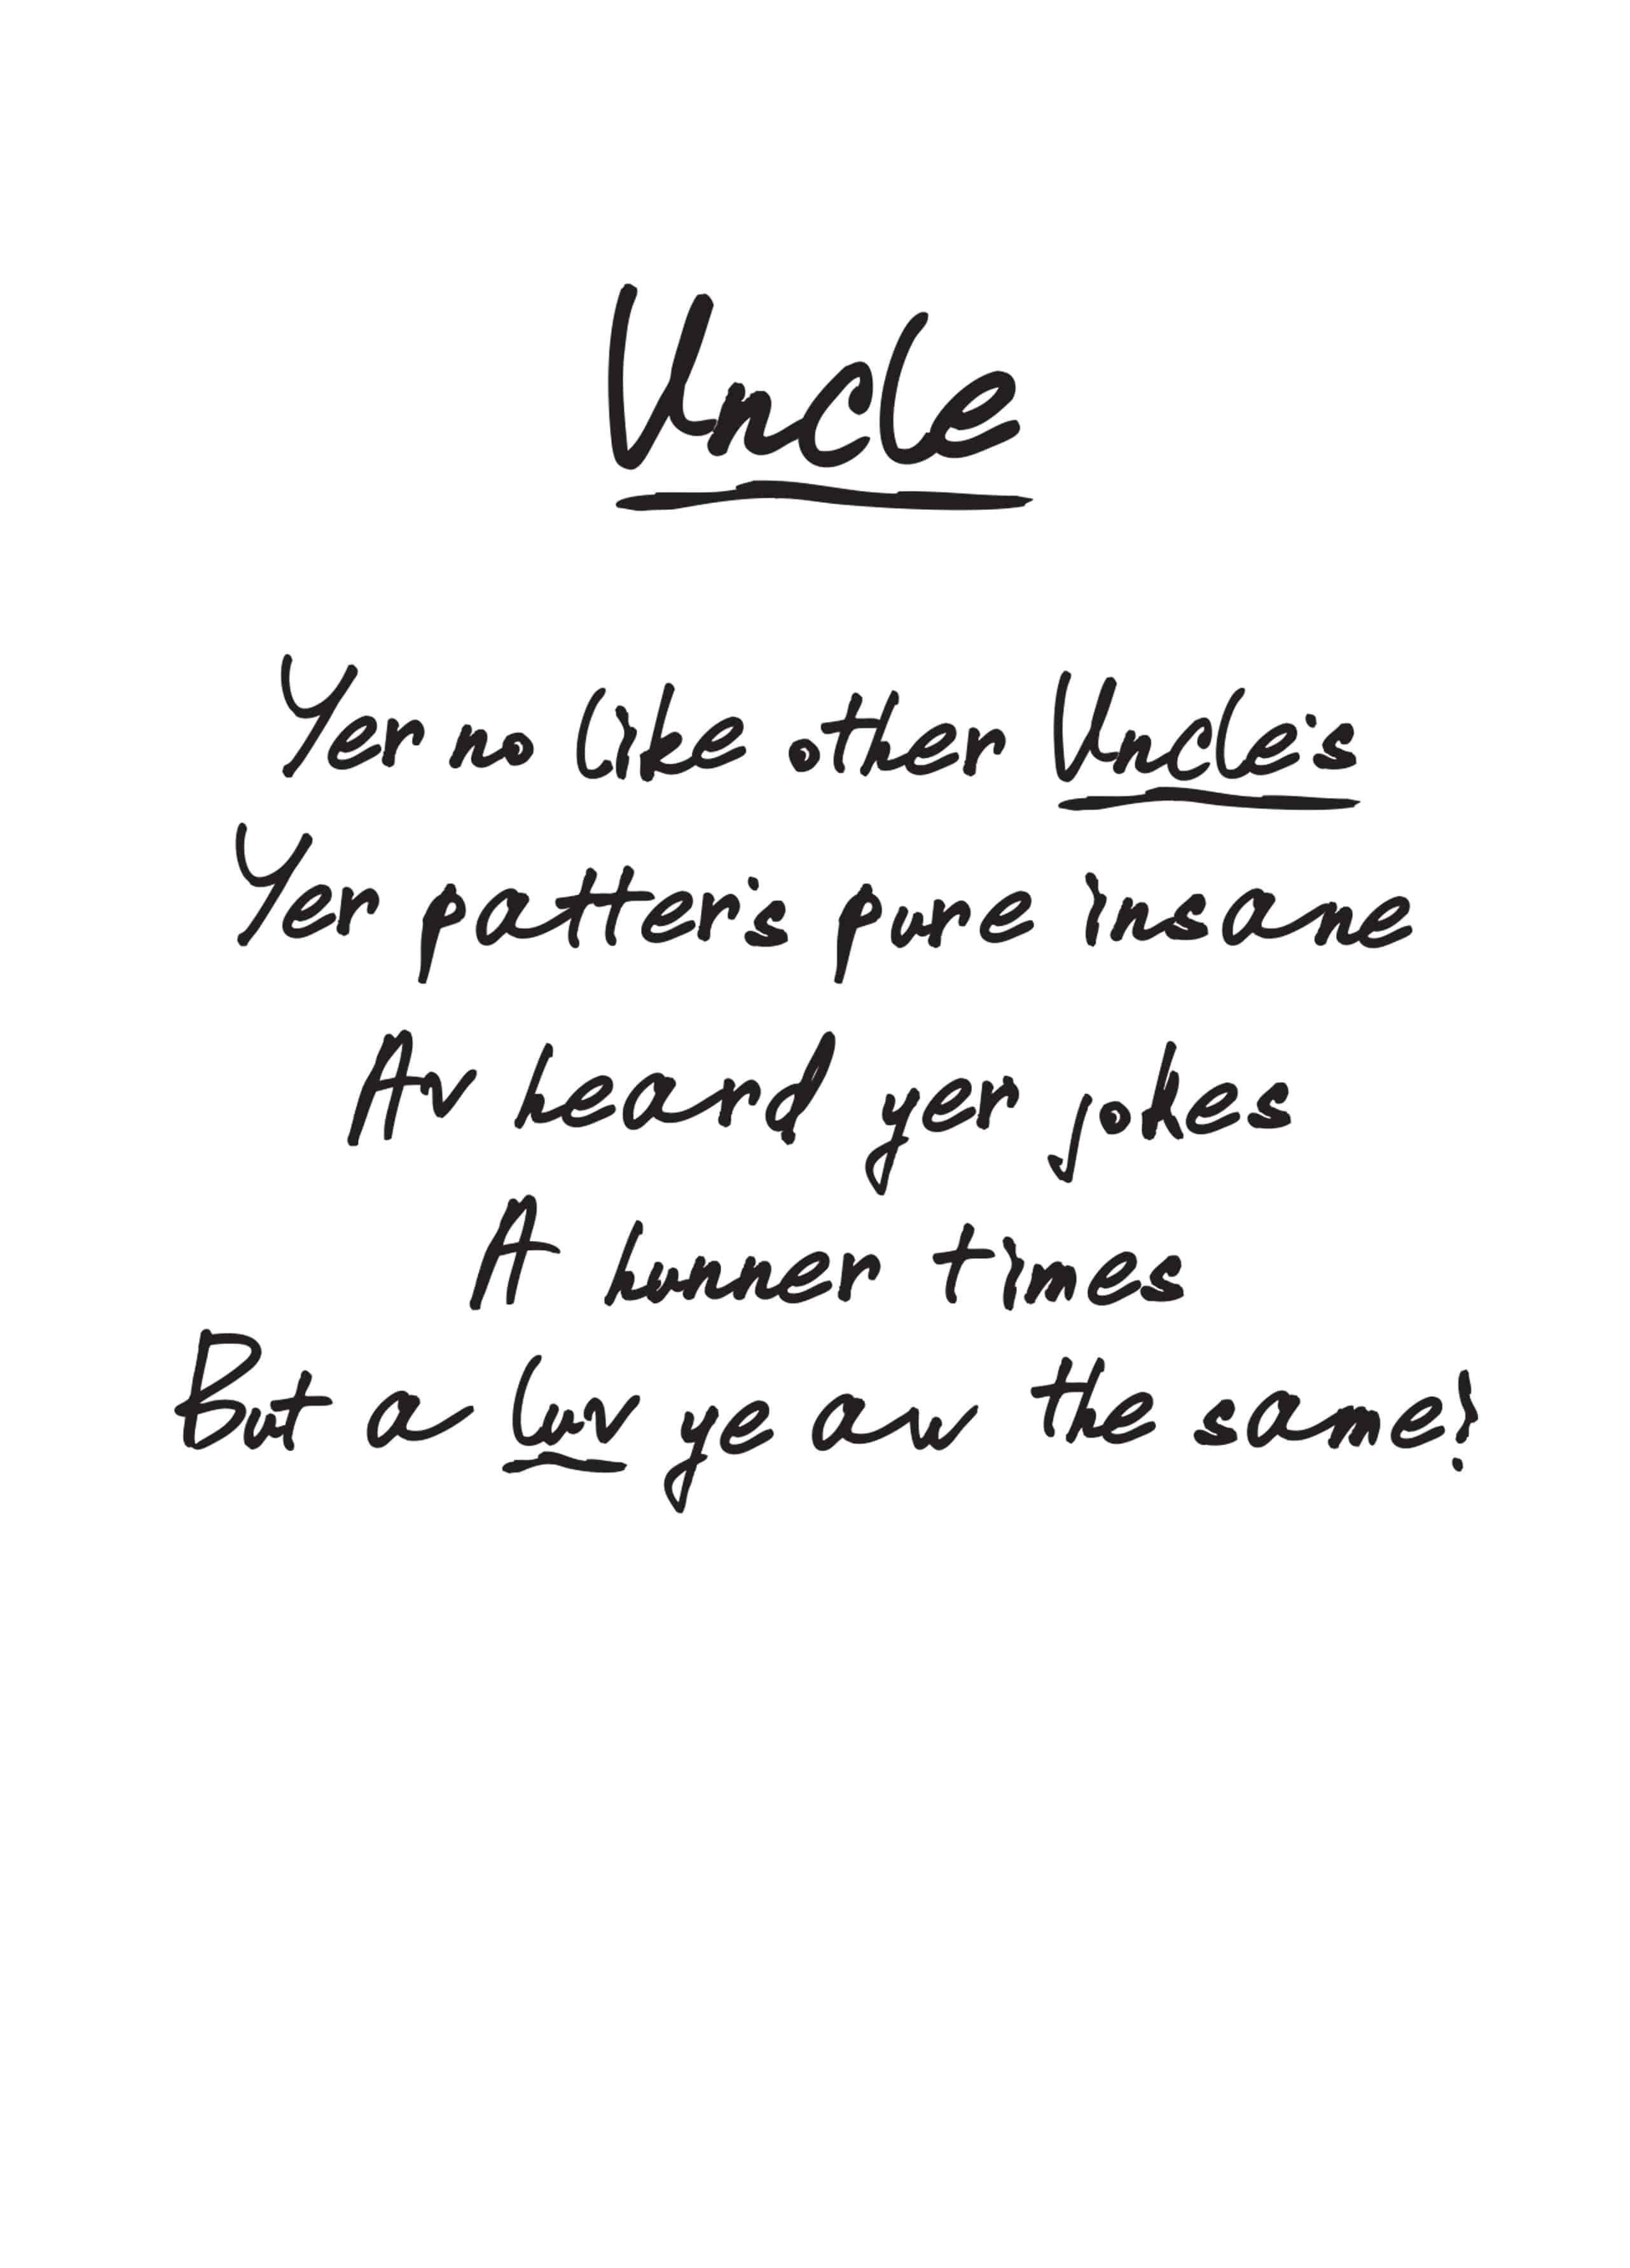 Uncle
Yer no like other Uncle's
Yer patter's pure insane
Av heard yer jokes
A hunner times
But a luv ye aw the same!